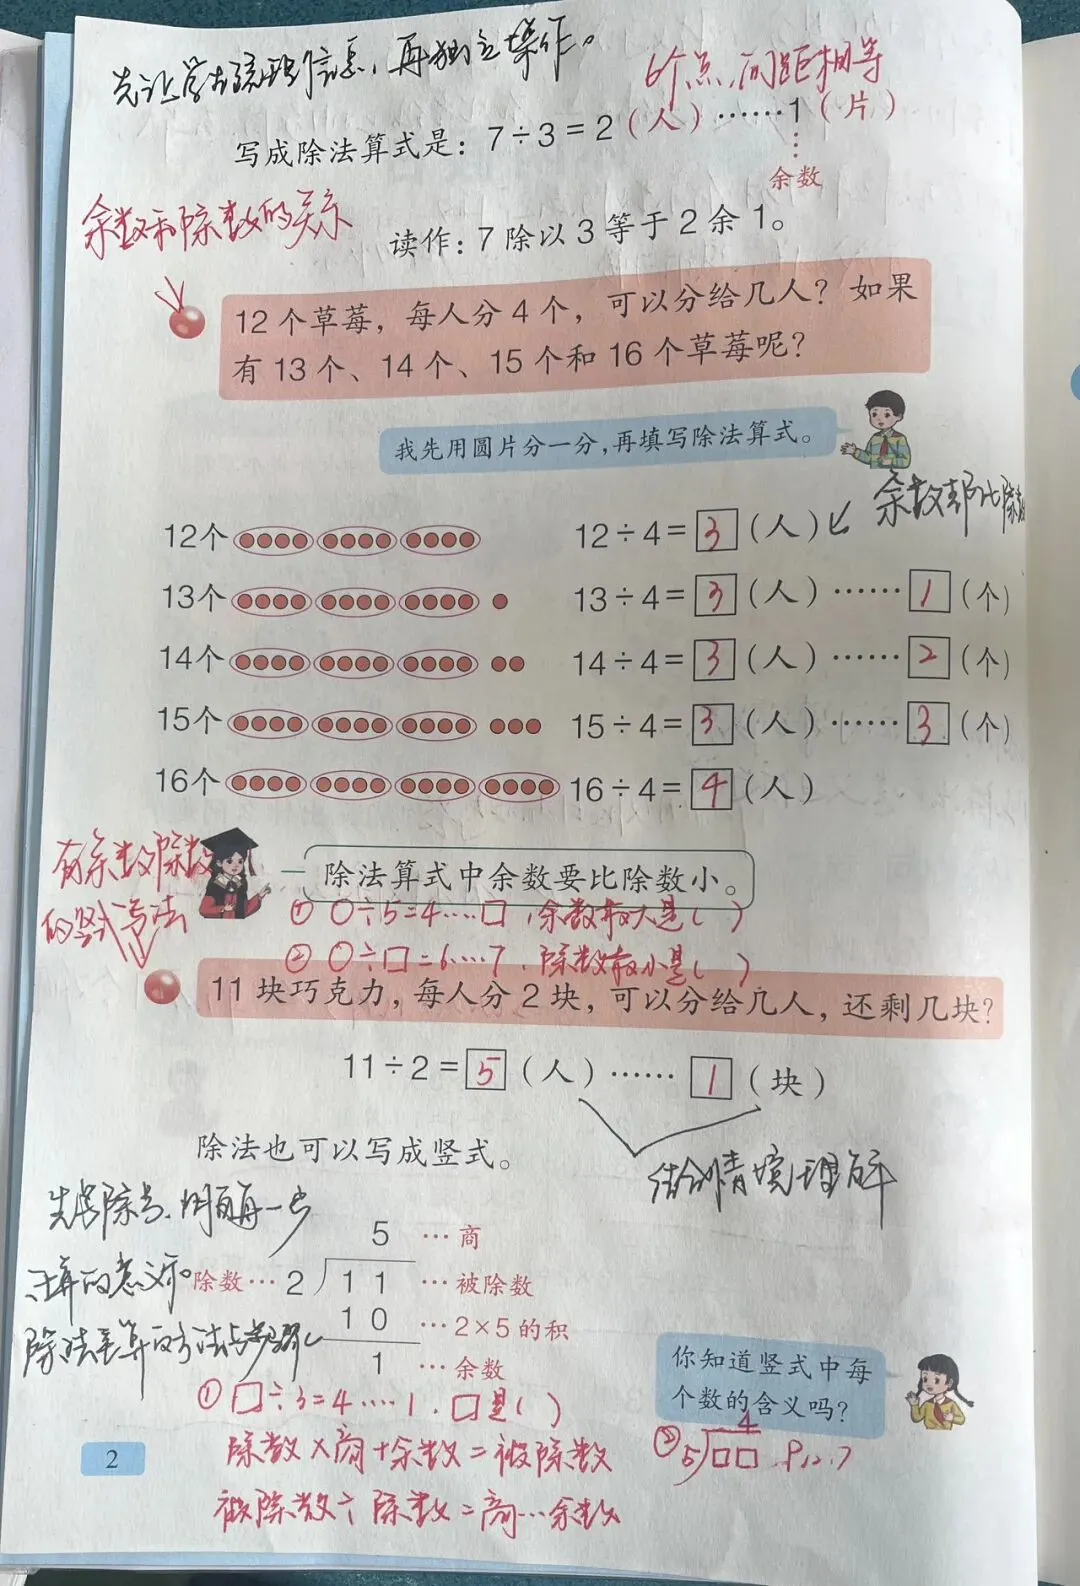 先让学生梳理信息，再独立操作。
6个点，间距相等
写成除法算式是：7÷3=2（人）……1（片）
余数
余数和除数的关系
读作：7除以3等于2余1。
12个草莓，每人分4个，可以分给几人？如果
有13个、14个、15个和16个草莓呢？
我先用圆片分一分，再填写除法算式。
余数都比除数
12个 12÷4=3（人）
13个 13÷4=3（人）……1（个）
14个 14÷4=3（人）……2（个）
15个 15÷4=3（人）……3（个）
16个 16÷4=4（人）
有余数除数
的竖式写法
除法算式中余数要比除数小。
① ○÷5=4……□，余数最大是（ ）
② ○÷□=6……7，除数最小是（ ）
11块巧克力，每人分2块，可以分给几人，还剩几块？
11÷2=5（人）……1（块）
结合情境理解
除法也可以写成竖式。
先写除号，明确每一步
计算的意义。
5 …商
除数…2 11 …被除数
10 …2×5的积
1 …余数
① □÷3=4……1，□是（ ）
除数×商+余数=被除数
被除数÷除数=商…余数
你知道竖式中每
个数的含义吗？
4
② 5 □□ P12.7
2